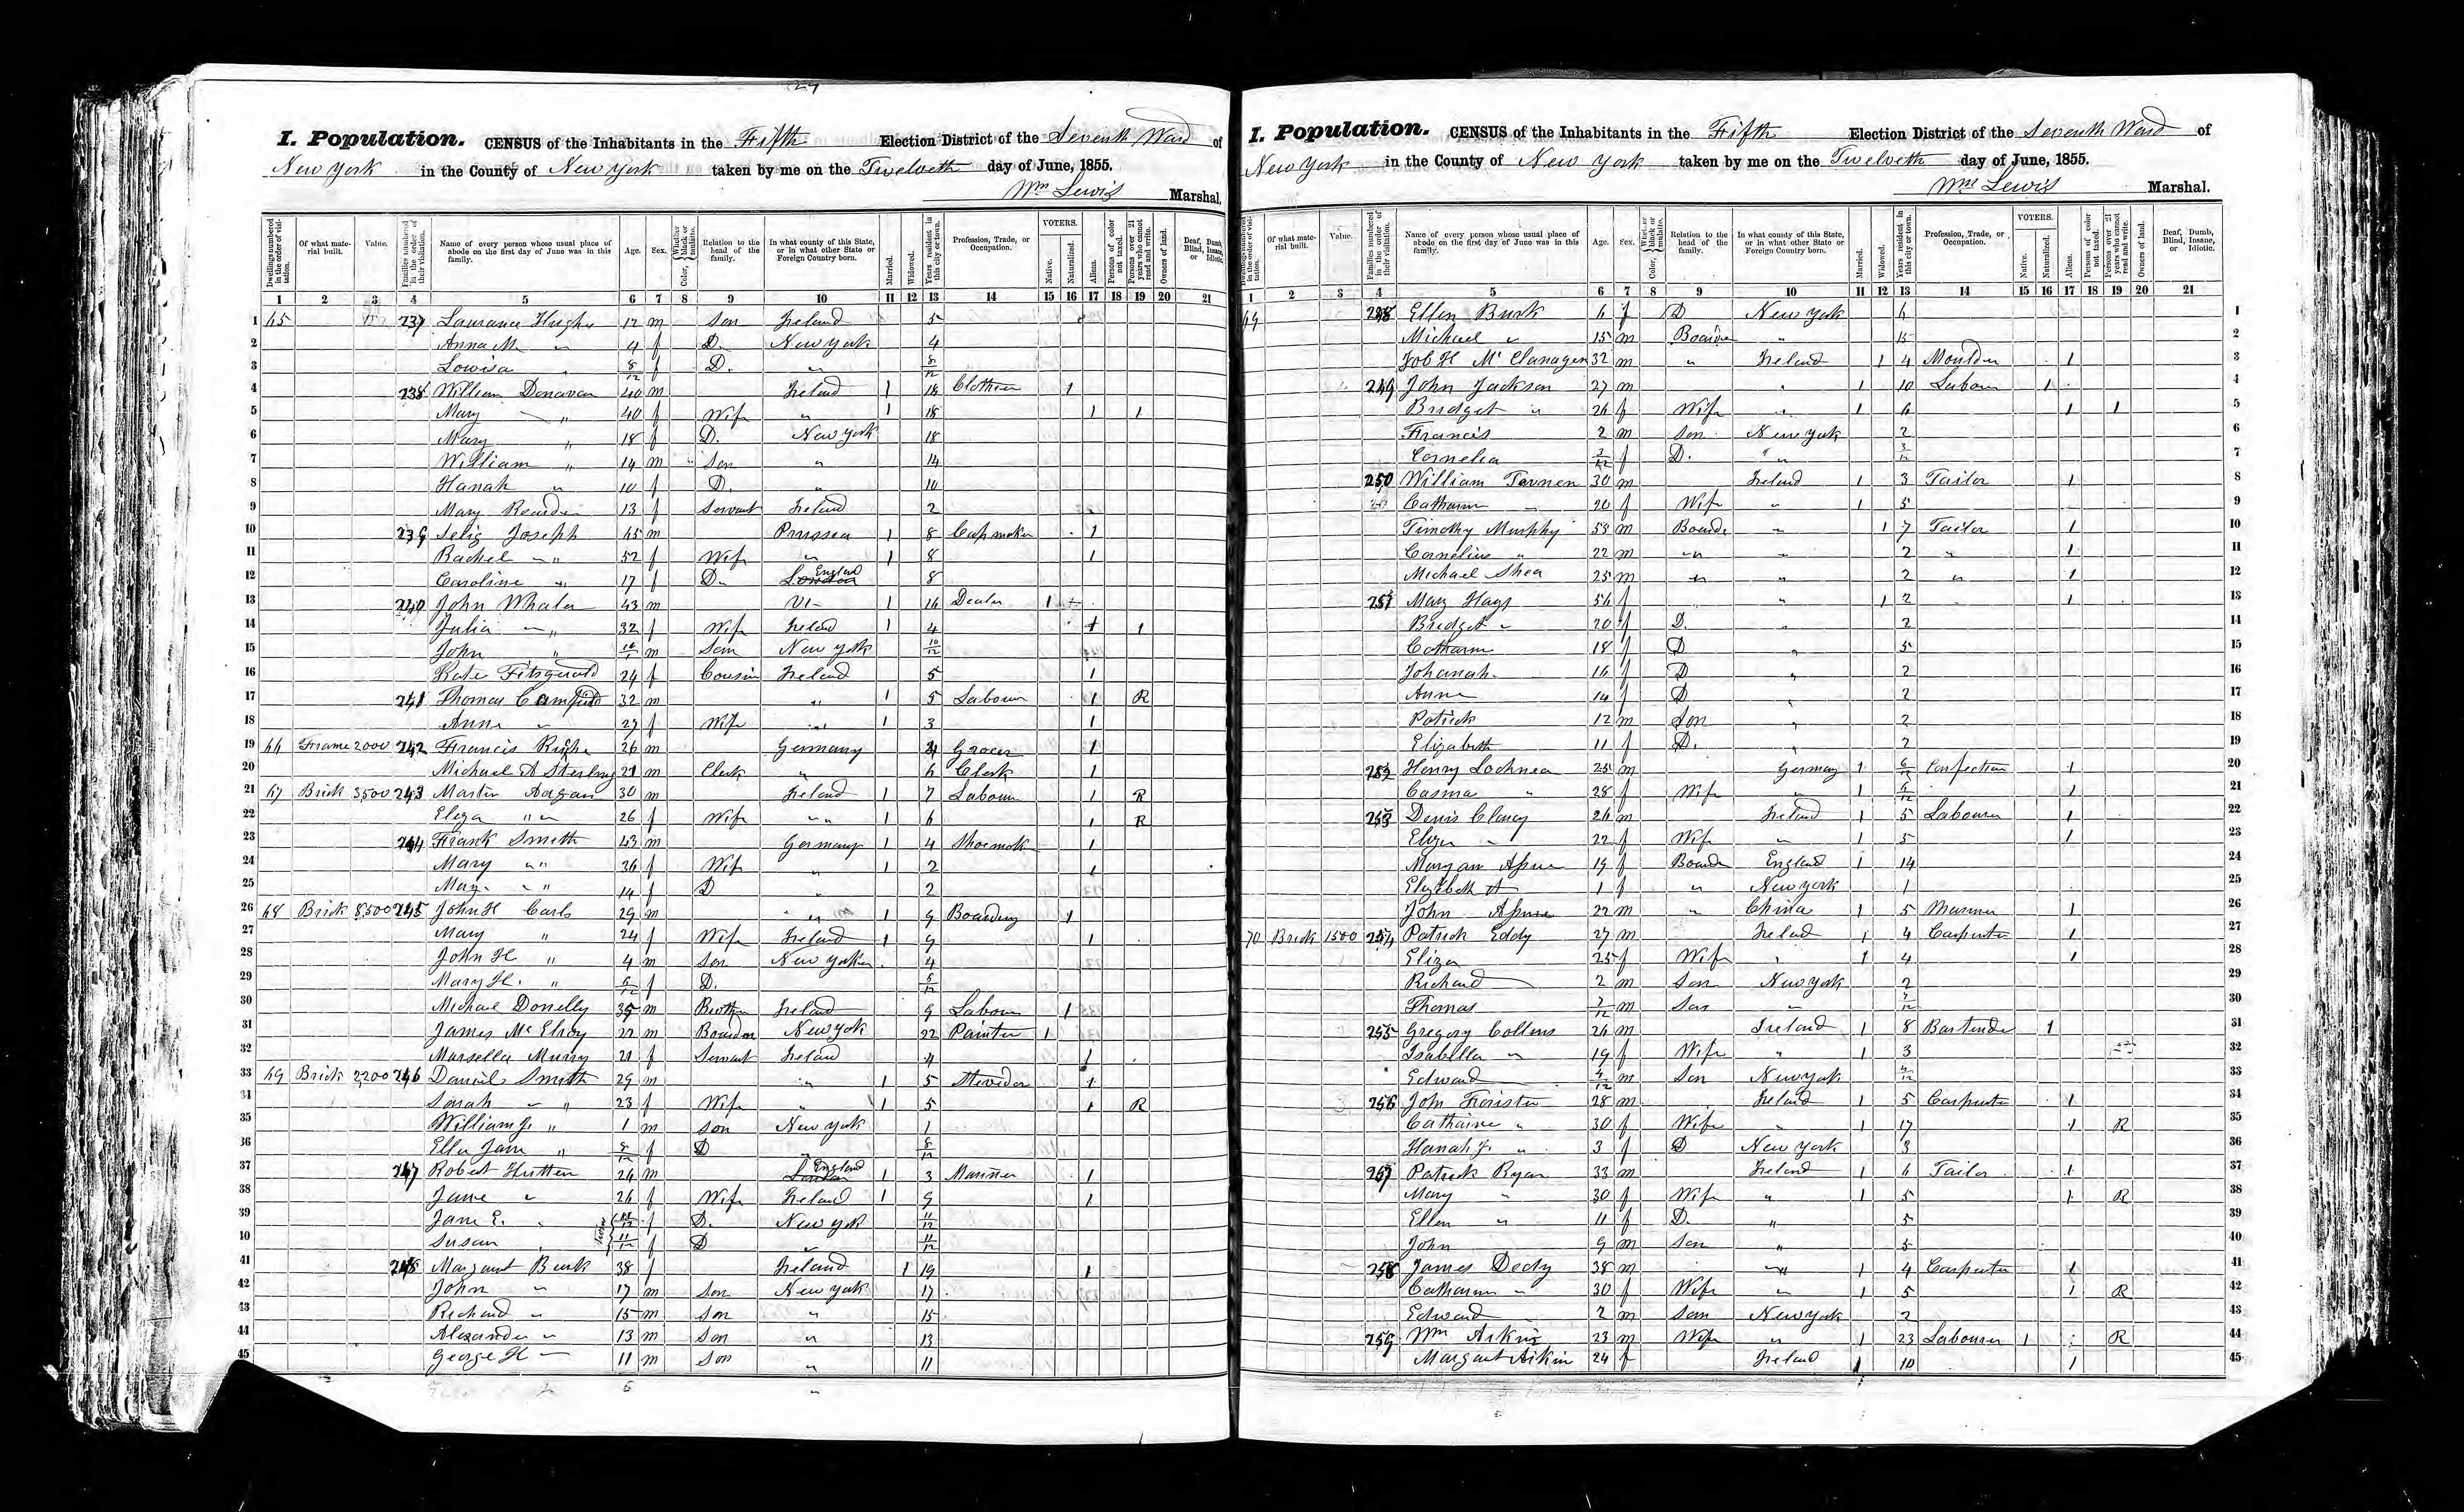 27
I. Population. CENSUS of the Inhabitants in the Fifth Election District of the Seventh Ward of
New York in the County of New York taken by me on the Twelveth day of June, 1855.
Wm Lewis Marshal.
Dwellings numbered in the order of visitation. Of what material built. Value. Families numbered in the order of their visitation. Name of every person whose usual place of abode on the first day of June was in this family. Age. Sex. Color, Whether black or mulatto. Relation to the head of the family. In what county of this State, or in what other State or Foreign Country born. Married. Widowed. Years resident in this city or town. Profession, Trade, or Occupation. VOTERS. Native. Naturalized. Aliens. Persons of color not taxed. Persons over 21 years who cannot read and write. Owners of land. Deaf, Dumb, Blind, Insane, or Idiotic.
1 2 3 4 5 6 7 8 9 10 11 12 13 14 15 16 17 18 19 20 21
1 65 237 Laurance Hughs 12 m Son Ireland 5
2 Anna M. " 4 f D. New York 4
3 Lowisa " 8/12 f D. " 8/12
4 238 William Donavan 40 m Ireland 1 18 Clothier 1
5 Mary " 40 f Wife " 1 18 1 1
6 Mary " 18 f D. New York 18
7 William " 14 m Son " 14
8 Hanah " 10 f D. " 10
9 Mary 13 f Servant Ireland 2
10 239 Selig Joseph 65 m Prussea 1 8 Capmaker 1
11 Rachel " 52 f Wife " 1 8 1
12 Caroline " 17 f D. London England 8
13 240 John Whalen 43 m Vt 1 16 Dealer 1
14 Julia " 32 f Wife Ireland 1 4 1 1
15 John " 10/12 m Son New York 10/12
16 Kate Fitzgerald 24 f Cousin Ireland 5 1
17 241 Thomas 32 m " 1 5 Labourer 1 R
18 Anne " 27 f Wife " 1 3 1
19 66 Frame 2000 242 Francis 26 m Germany 4 Grocer 1
20 Michael A Sterling 21 m Clerk " 6 Clerk 1
21 67 Brick 3500 243 Martin 30 m Ireland 1 7 Labourer 1 R
22 Eliza " 26 f Wife " 1 6 1 R
23 244 Frank Smith 43 m Germany 1 4 Shoemak 1
24 Mary " 36 f Wife " 1 2 1
25 Mary " 14 f D " 2
26 68 Brick 8500 245 John H Carls 29 m " 1 9 Boarding 1
27 Mary " 24 f Wife Ireland 1 9 1
28 John H " 4 m Son New York 4
29 Mary H. " 6/12 f D. 6/12
30 Michael Donelly 35 m Brother Ireland 9 Labourer 1
31 James McElroy 22 m Boarder New York 22 Painter 1
32 Marsella Murry 21 f Servant Ireland 4 1
33 69 Brick 2200 246 Daniel Smith 29 m " 1 5 Stevidor 1
34 Sarah " 23 f Wife " 1 5 1 R
35 William J. " 1 m Son New York 1
36 Ellen Jane " 8/12 f D " 8/12
37 247 Robert Hutten 24 m London England 1 3 Mariner 1
38 Jane " 26 f Wife Ireland 1 9 1
39 Jane E. " twins 11/12 f D. New York 11/12
40 Susan " 11/12 f D " 11/12
41 248 Margaret Burk 38 f Ireland 1 19 1
42 John " 17 m Son New York 17
43 Richard " 15 m Son " 15
44 Alexander " 13 m Son " 13
45 George H " 11 m Son " 11
I. Population. CENSUS of the Inhabitants in the Fifth Election District of the Seventh Ward of
New York in the County of New York taken by me on the Twelveth day of June, 1855.
Wm Lewis Marshal.
Dwellings numbered in the order of visitation. Of what material built. Value. Families numbered in the order of their visitation. Name of every person whose usual place of abode on the first day of June was in this family. Age. Sex. Color, Whether black or mulatto. Relation to the head of the family. In what county of this State, or in what other State or Foreign Country born. Married. Widowed. Years resident in this city or town. Profession, Trade, or Occupation. VOTERS. Native. Naturalized. Aliens. Persons of color not taxed. Persons over 21 years who cannot read and write. Owners of land. Deaf, Dumb, Blind, Insane, or Idiotic.
1 2 3 4 5 6 7 8 9 10 11 12 13 14 15 16 17 18 19 20 21
69 248 Ellen Burk 6 f D New York 6 1
Michael " 15 m Boarder " 15 2
Job H McClanagen 32 m " Ireland 1 4 Moulder 1 3
249 John Jackson 27 m " 1 10 Labourer 1 4
Bridget " 26 f Wife " 1 6 1 1 5
Francis 2 m Son New York 2 6
Cornelia 3/12 f D. " 3/12 7
250 William 30 m Ireland 1 3 Tailor 1 8
Catharine " 20 f Wife " 1 5 9
Timothy Murphy 58 m Boarder " 1 7 Tailor 1 10
Cornelius " 22 m " " 2 " 1 11
Michael Shea 25 m " " 2 " 1 12
251 Mary Hays 56 f " 1 2 1 13
Bridget " 20 f D. " 2 14
Catharine 18 f D " 5 15
Johanah 16 f D " 2 16
Anne 14 f D " 2 17
Patrick 12 m Son " 2 18
Elizabeth 11 f D. " 2 19
252 Henry Lochnea 25 m Germany 1 6/12 Confection 1 20
Casma " 28 f Wife " 1 6/12 1 21
253 Denis Clancy 26 m Ireland 1 5 Labourer 1 22
Eliza " 22 f Wife " 1 5 1 23
Margan 19 f Boarder England 1 14 24
Elizabeth A 1 f " New York 1 25
John 22 m " China 1 5 Mariner 1 26
70 Brick 1500 254 Patrick Eddy 27 m Ireland 1 4 Carpenter 1 27
Eliza 25 f Wife " 1 4 1 28
Richard 2 m Son New York 2 29
Thomas 7/12 m Son " 7/12 30
255 Gregory Collens 26 m Ireland 1 8 Bartender 1 31
Isabella " 19 f Wife " 1 3 32
Edward 4/12 m Son New York 4/12 33
256 John 28 m Ireland 1 5 Carpenter 1 34
Cathaine " 30 f Wife " 1 17 1 R 35
Hanah J. " 3 f D New York 3 36
257 Patrick Ryan 33 m Ireland 1 6 Tailor 1 37
Mary " 30 f Wife " 1 5 1 R 38
Ellen " 11 f D. " 5 39
John 9 m Son " 5 40
258 James Dedy 38 m " 1 4 Carpenter 1 41
Catharine " 30 f Wife " 1 5 1 R 42
Edward 2 m Son New York 2 43
259 Wm Aikin 23 m Wife " 1 23 Labourer 1 R 44
Margaret Aikin 24 f Ireland 1 10 1 45